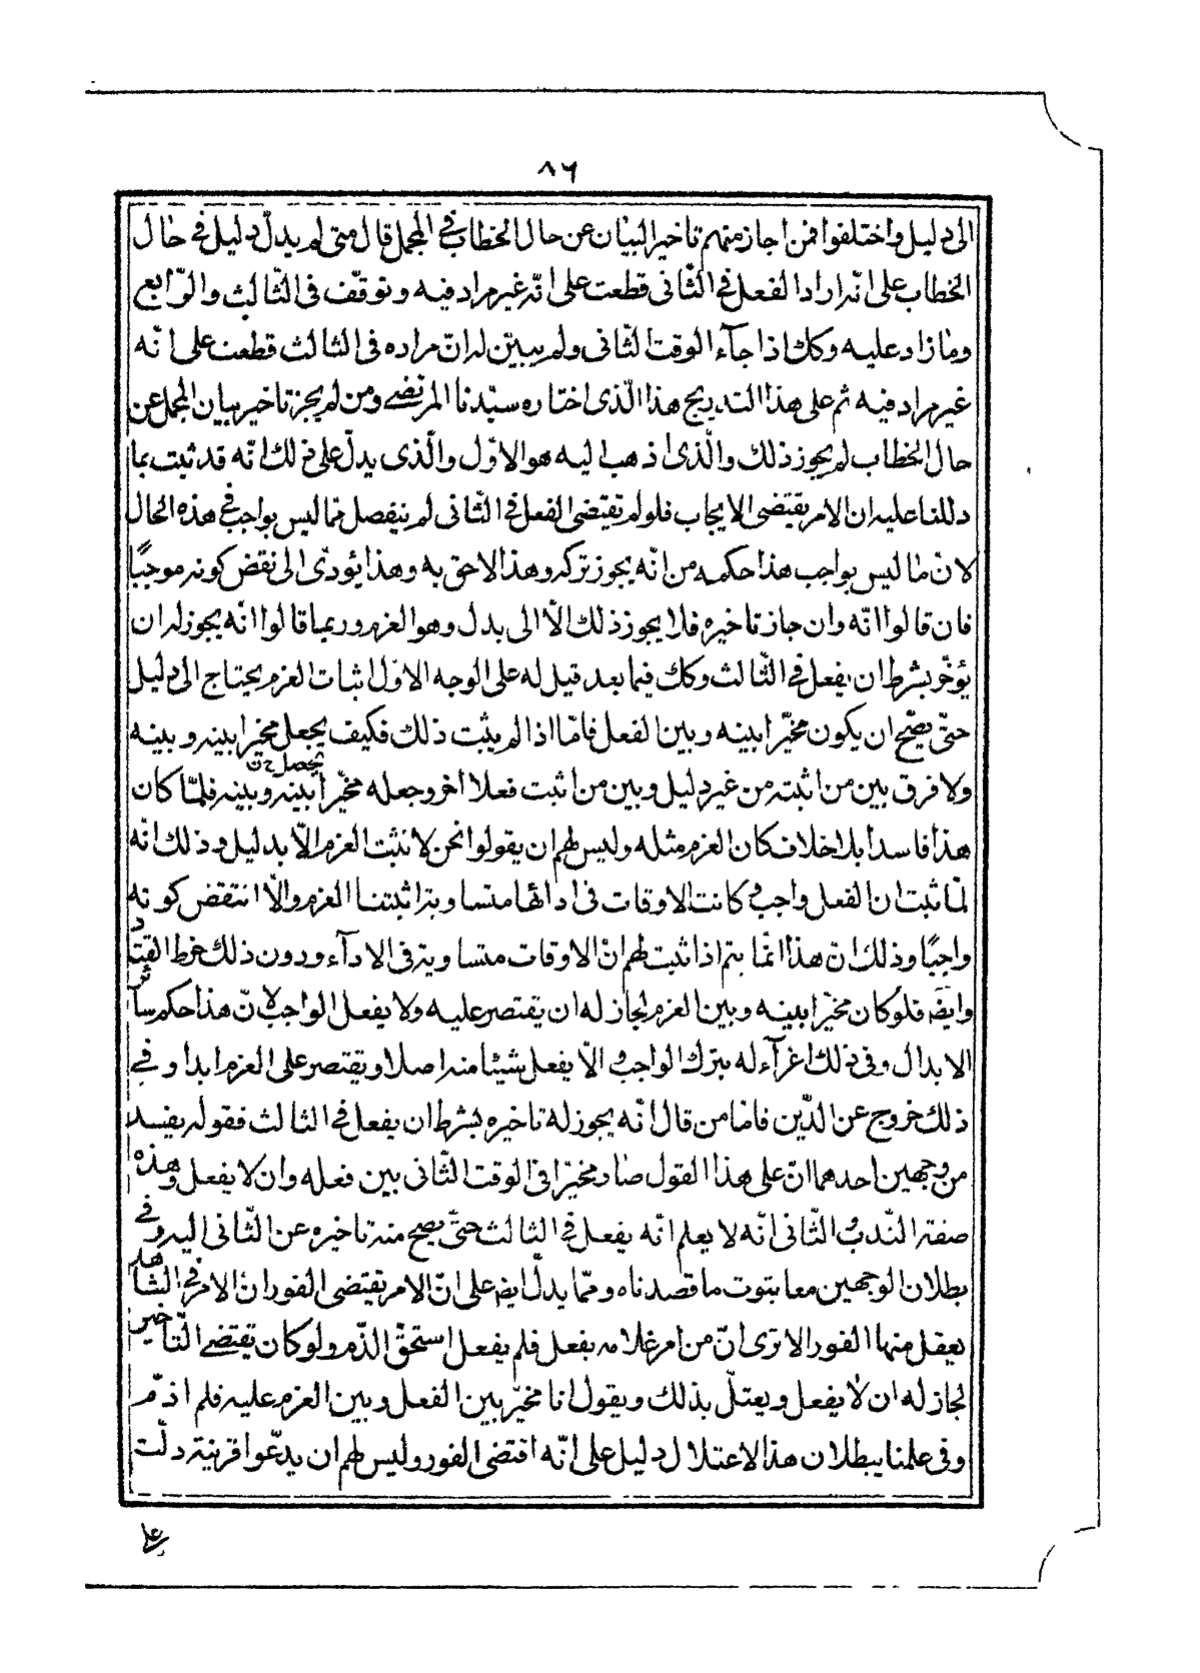 ٨٦
الى دليل واختلفوا فمن اجاز منهم تاخير البيان عن حال الخطاب في المجمل قال متى لم يدلّ دليل في حال
الخطاب على انّه اراد الفعل في الثّانى قطعت على انّه غير مراد فيه وتوقّف فى الثّالث والرّابع
وما زاد عليه وكك اذا جآء الوقت الثّانى ولم يبيّن له انّ مراده فى الثالث قطعت على انّه
غير مراد فيه ثم على هذا التدريج هذا الّذى اختاره سيّدنا المرتضى ومن لم يجز تاخير بيان المجمل عن
حال الخطاب لم يجوز ذلك والّذى اذهب اليه هو الاوّل والّذى يدلّ على ذلك انّه قد ثبت بما
دللنا عليه ان الامر يقتضى الايجاب فلو لم تقتضى الفعل في الثّانى لم ينفصل ممّا ليس بواجب في هذه الحال
لانّ ما ليس بواجب هذا حكمه من انّه يجوز تركه وهذا لاحق به وهذا يؤدّى الى نقض كونه موجبًا
فان قالوا انّه وان جاز تاخيره فلا يجوز ذلك الّا الى بدل وهو العزم وربما قالوا انّه يجوز له ان
يؤخّر بشرط ان يفعل في الثّالث وكك فيما بعد قيل له على الوجه الاوّل اثبات العزم يحتاج الى دليل
حتّى يصّح ان يكون مخيّرا بينه وبين الفعل فامّا اذا لم يثبت ذلك فكيف يجعل مخيرا بينه وبينه
يحصل خ ن
ولا فرق بين من اثبته من غير دليل وبين من اثبت فعلا اخر وجعله مخيّرا بينه وبينه فلمّا كان
هذا فاسدا بلا خلاف كان العزم مثله وليس لهم ان يقولوا نحن لا نثبت العزم الّا بدليل وذلك انّه
لمّا ثبت ان الفعل واجب وكانت الاوقات فى ادائها متساوية اثبتنا العزم والّا انتقض كونه
واجبًا وذلك انّ هذا انّما يتم اذا ثبت لهم انّ الاوقات متساوية فى الادآء ودون ذلك خرط القتاد
وايضَ فلو كان مخيّرا بينه وبين العزم لجاز له ان يقتصر عليه ولا يفعل الواجب لانّ هذا حكم سائر
الابدال وفى ذلك اغرآء له بترك الواجب والّا يفعل شيئا منه اصلا ويقتصر على العزم ابدا وفي
ذلك خروج عن الدّين فامّا من قال انّه يجوز له تاخيره بشرط ان يفعل في الثالث فقوله يفسد
من وجهين احدهما انّ على هذا القول صار مخيّرا فى الوقت الثّانى بين فعله وان لا يفعل وهذه
صفة النّدب والثّانى انّه لا يعلم انّه يفعل في الثالث حتّى يصح منه تاخيره عن الثّانى اليه وفي
بطلان الوجهين معا بثوت ما قصدناه وممّا يدلّ ايضَ على انّ الامر يقتضى الفور انّ الامر في الشاهد
يعقل منها الفور الا ترى انّ من امر غلامه بفعل فلم يفعل استحقّ الذّم ولو كان تقتضى التّاخير
لجاز له ان لا يفعل ويعتلّ بذلك ويقول انا مخيّر بين الفعل وبين العزم عليه فلم اذمّ
وفى علمنا ببطلان هذا الاعتلال دليل على انّه اقتضى الفور وليس لهم ان يدّعوا قرينة دلّت
على